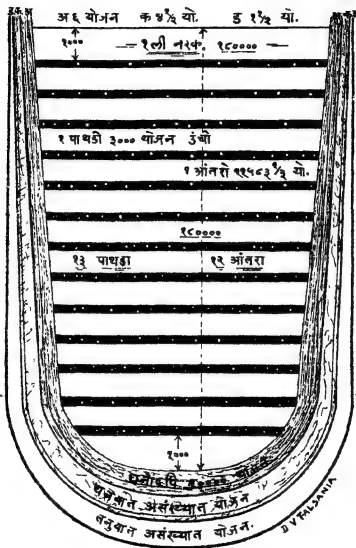 अ ६ योजन क ४ १/२ यो. ड १ १/२ यो.
१०००
१ली नरक. १८००००
१ पाथडो ३००० योजन उंचो
१ आंतरो ११५८३ १/३ यो.
१८००००
१३ पाथडा १२ आंतरा
१०००
घनोदधि २०००० योजन
घनवात असंख्यात योजन
तनुवात असंख्यात योजन.
D V FALSANIA